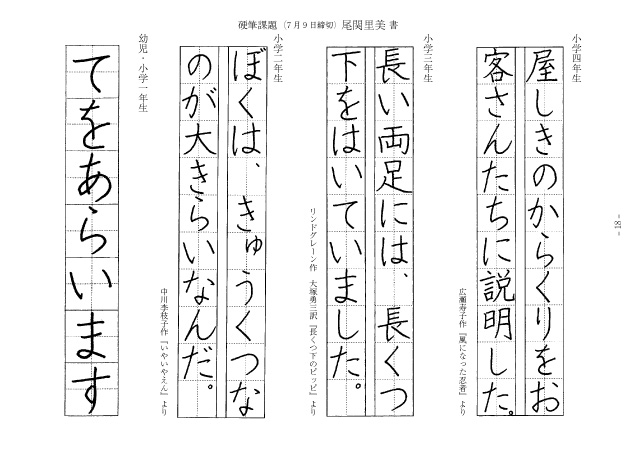 硬筆課題（7月9日締切）尾関里美 書
小学四年生
屋しきのからくりをお
客さんたちに説明した。
広瀬寿子作『風になった忍者』より
小学三年生
長い両足には、長くつ
下をはいていました。
リンドグレーン作 大塚勇三訳『長くつ下のピッピ』より
小学二年生
ぼくは、きゅうくつな
のが大きらいなんだ。
中川李枝子作『いやいやえん』より
幼児・小学一年生
てをあらいます